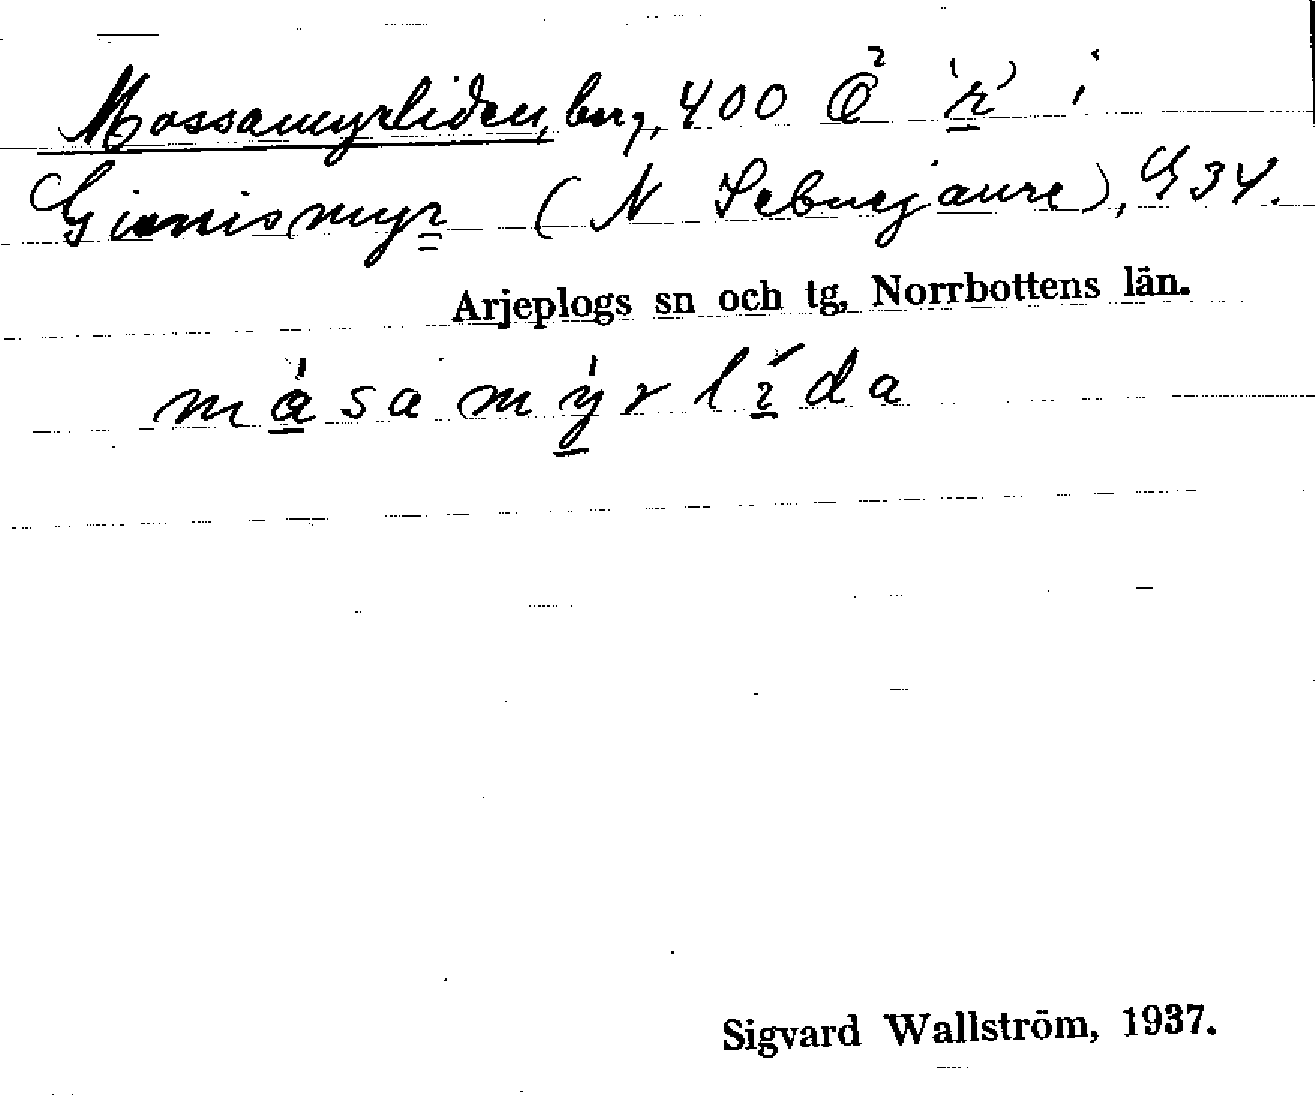 Mossamyrliden, berg, 400 Ö² 'r' i
Ginnismyr (N Sebnejaure), G 34.
Arjeplogs sn och tg, Norrbottens län.
måsamy̱rli̱da
Sigvard Wallström, 1937.